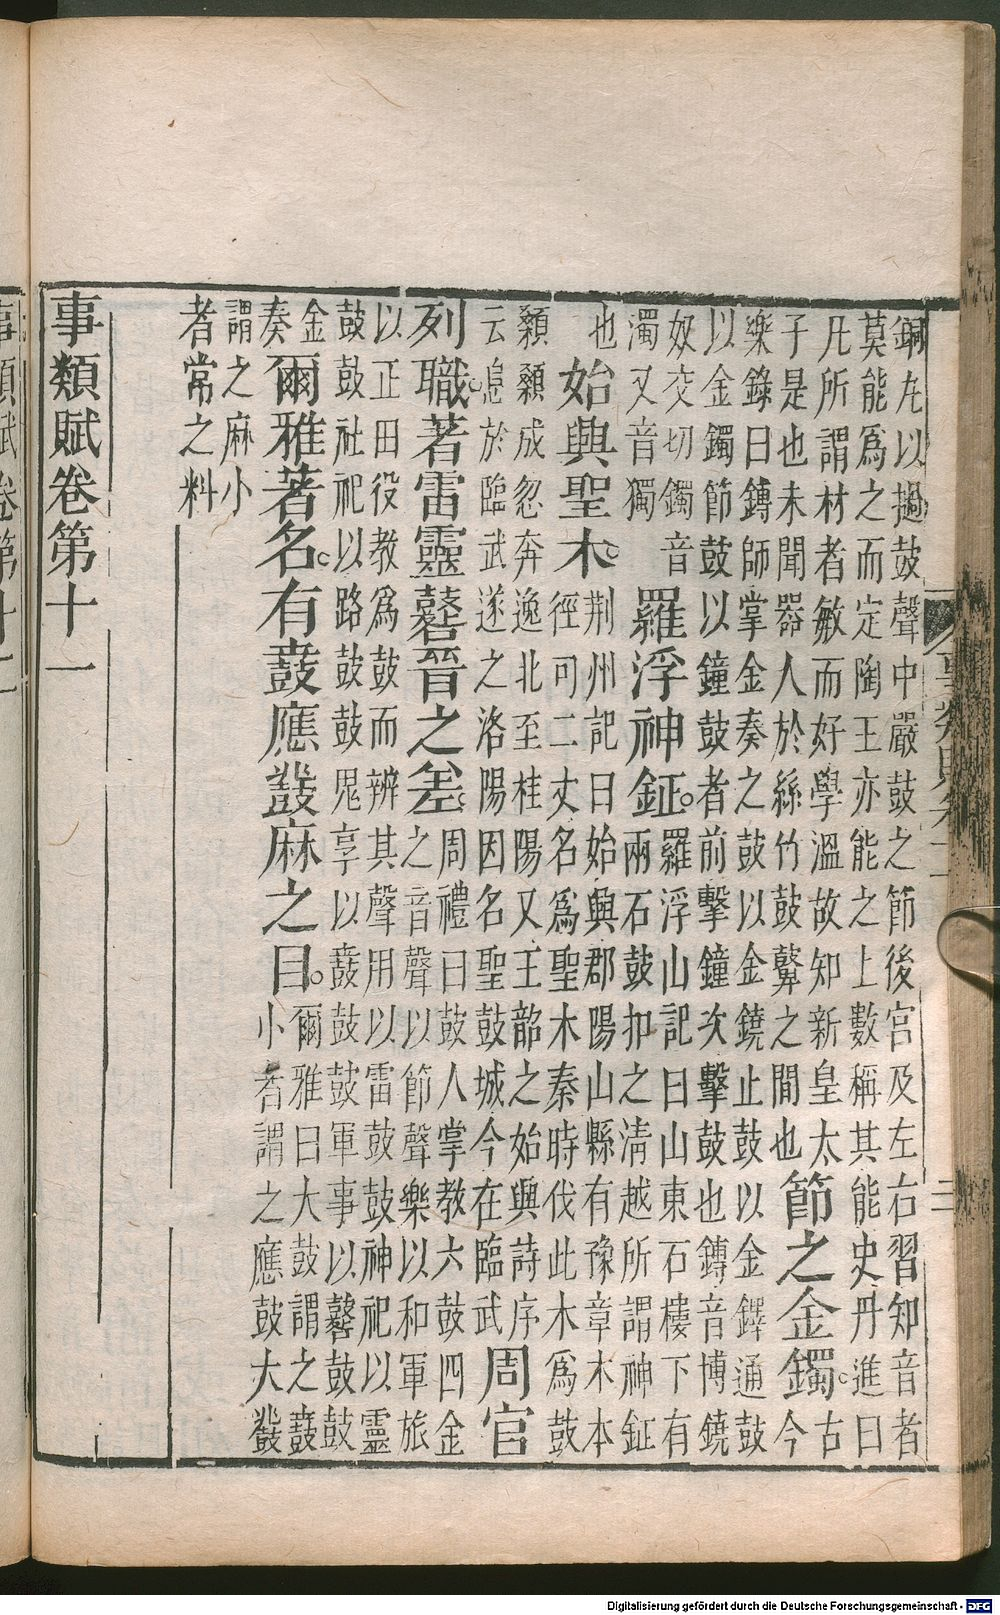 銅丸以擿鼓聲中嚴鼓之節後宮及左右習知音者
莫能爲之而定陶王亦能之上數稱其能史丹進曰
凡所謂材者敏而好學溫故知新皇太
子是也未聞器人於絲竹鼓鼙之間也
節之金鐲。
古
今
樂錄曰鎛師掌金奏之鼓以金鐃止鼓以金鐸通鼓
以金鐲節鼓以鐘鼓者前擊鐘次擊鼓也鎛音博鐃
奴交切鐲音
濁又音獨
羅浮神鉦。
羅浮山記曰山東石樓下有
兩石鼓扣之清越所謂神鉦
也
始興聖木。
荆州記曰始興郡陽山縣有豫章木本
徑可二丈名爲聖木秦時伐此木爲鼓
顙顙成忽奔逸北至桂陽又王韶之始興詩序
云追於臨武遂之洛陽因名聖鼓城今在臨武
周官
列職著雷靈鼛晉之差。
周禮曰鼓人掌教六鼓四金
之音聲以節聲樂以和軍旅
以正田役教爲鼓而辨其聲用以雷鼓鼓神祀以靈
鼓鼓社祀以路鼓鼓鬼享以鼖鼓鼓軍事以鼛鼓鼓
金
奏
爾雅著名。有鼖應鼗麻之目。
爾雅曰大鼓謂之鼖
小者謂之應鼓大鼗
謂之麻小
者常之料
事類賦卷第十一
Digitalisierung gefördert durch die Deutsche Forschungsgemeinschaft - DFG